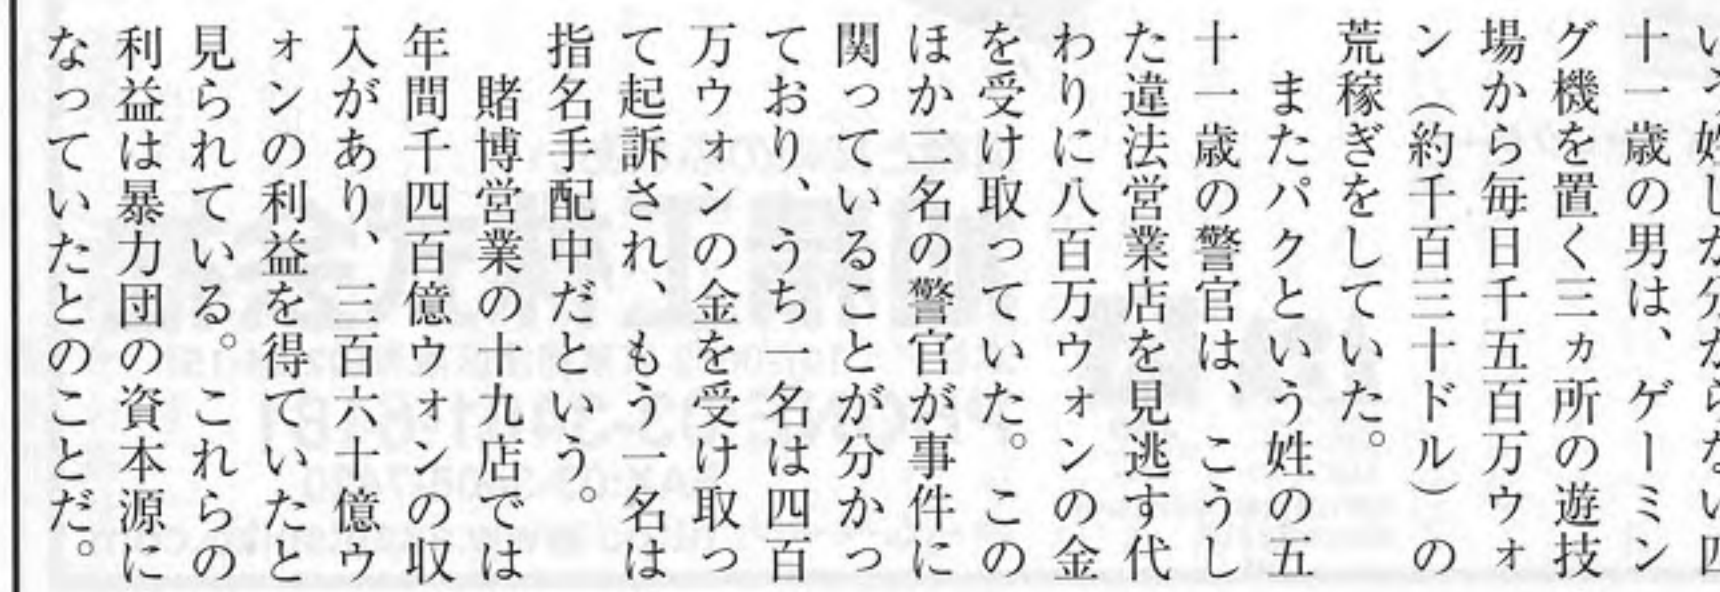 いう姓しか分からない四
十一歳の男は、ゲーミン
グ機を置く三ヵ所の遊技
場から毎日千五百万ウォ
ン（約千百三十ドル）の
荒稼ぎをしていた。
またパクという姓の五
十一歳の警官は、こうし
た違法営業店を見逃す代
わりに八百万ウォンの金
を受け取っていた。この
ほか二名の警官が事件に
関っていることが分かっ
ており、うち一名は四百
万ウォンの金を受け取っ
て起訴され、もう一名は
指名手配中だという。
賭博営業の十九店では
年間千四百億ウォンの収
入があり、三百六十億ウ
ォンの利益を得ていたと
見られている。これらの
利益は暴力団の資本源に
なっていたとのことだ。